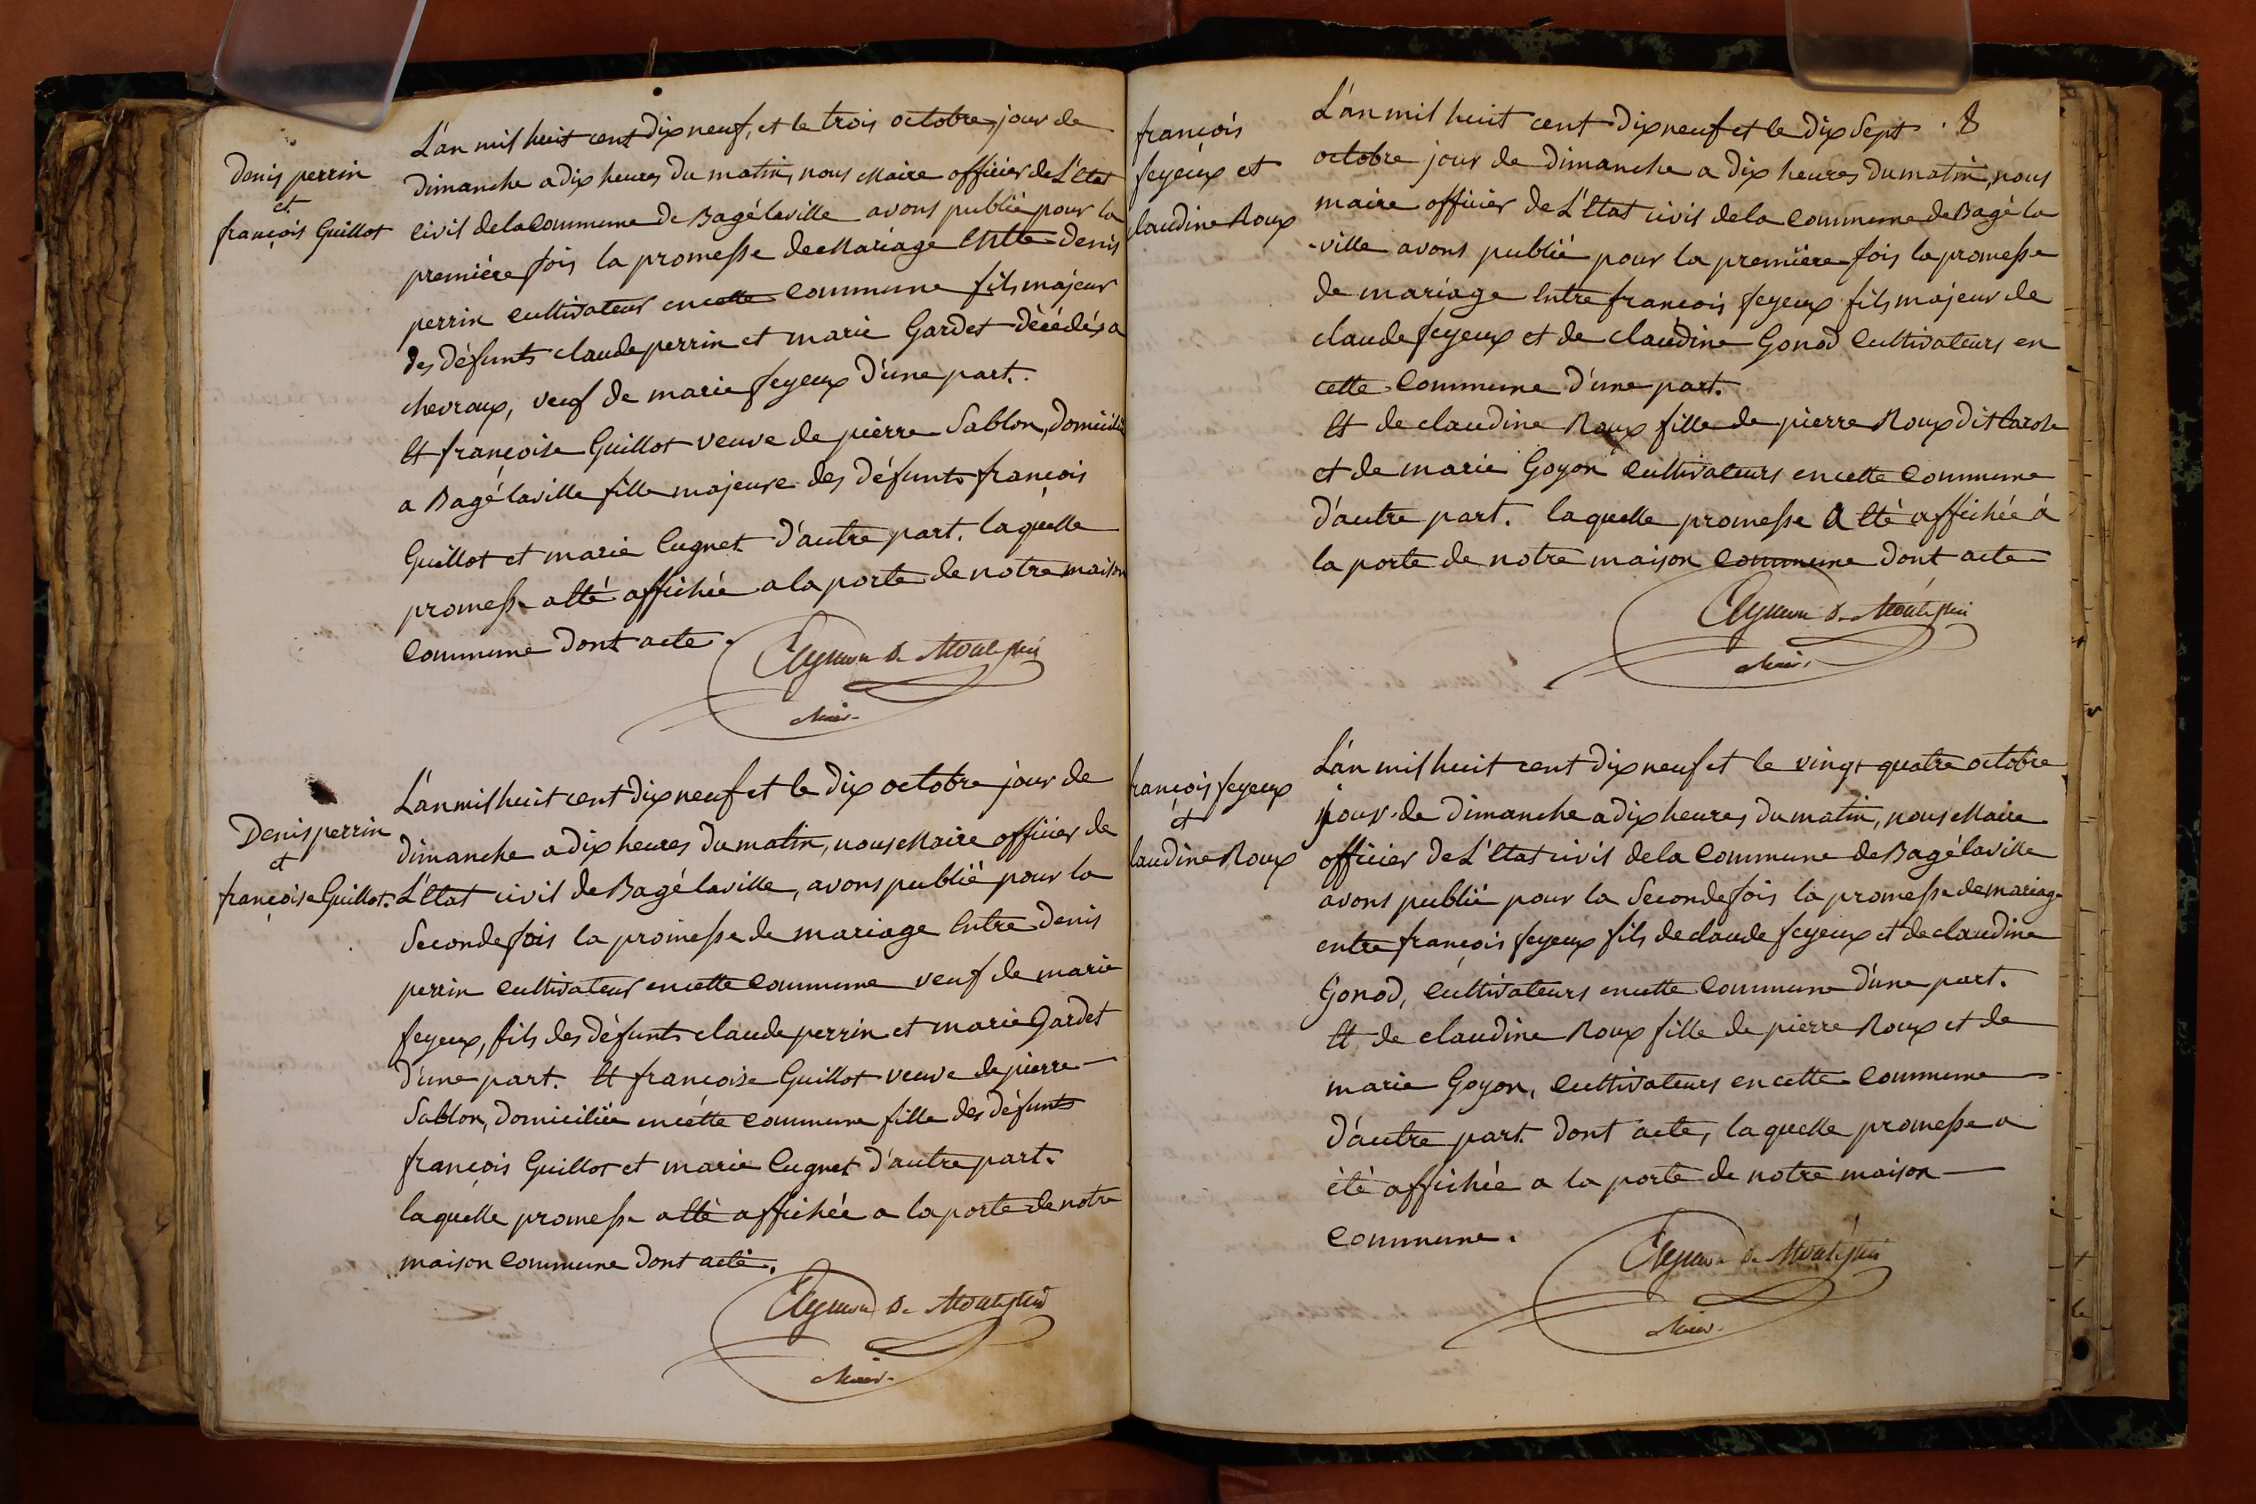 Denis perrin
et
françois Guillot
L'an mil huit cent dix neuf, et le trois octobre, jour de
dimanche a dix heures du matin, nous Maire officier de L'Etat
civil de la Commune de Bagé laville avons publié pour la
première fois la promesse de Mariage Entre denis
perrin cultivateur en cette Commune fils majeur
des défunts claude perrin et marie Gardet décédés a
chevroux, veuf de marie feyeux d'une part.
Et françoise Guillot veuve de pierre Sablon, domiciliée
a Bagé laville fille majeure des défunts françois
Guillot et marie Cugnet d'autre part. laquelle
promesse a Eté affichée a la porte de notre maison
Commune dont acte.
Maire
Denis perrin
et
françoise Guillot.
L'an mil huit cent dix neuf et le dix octobre jour de
dimanche a dix heures du matin, nous Maire officier de
L'Etat civil de Bagé laville, avons publié pour la
Seconde fois la promesse de mariage Entre Denis
perrin cultivateur en cette Commune veuf de marie
feyeux, fils des défunts claude perrin et marie Gardet
d'une part. Et françoise Guillot veuve de pierre
Sablon, domiciliée en cette Commune fille des défunts
françois Guillot et marie Cugnet d'autre part.
laquelle promesse a Eté affichée a la porte de notre
maison Commune dont acte.
Maire
françois
feyeux et
claudine Roux
8
L'an mil huit cent dix neuf et le dix Sept
octobre jour de dimanche a dix heures du matin, nous
maire officier de L'Etat civil de la Commune de Bagé la
-ville avons publié pour la première fois la promesse
de mariage Entre françois feyeux fils majeur de
claude feyeux et de claudine Gonod Cultivateurs en
cette Commune d'une part.
Et de claudine Roux fille de pierre Roux dit
et de marie Goyon Cultivateurs en cette Commune
d'autre part. laquelle promesse a Eté affichée à
la porte de notre maison Commune dont acte
Maire
françois feyeux
et
claudine Roux
L'an mil huit cent dix neuf et le vingt quatre octobre
jour de dimanche a dix heures du matin, nous Maire
officier de L'Etat civil de la Commune de Bagé laville
avons publié pour la Seconde fois la promesse de mariage
entre françois feyeux fils de claude feyeux et de claudine
Gonod, Cultivateurs en cette Commune d'une part.
Et de claudine Roux fille de pierre Roux et de
marie Goyon, Cultivateurs en cette Commune
d'autre part. dont acte, laquelle promesse a
été affichée a la porte de notre maison
Commune.
Maire